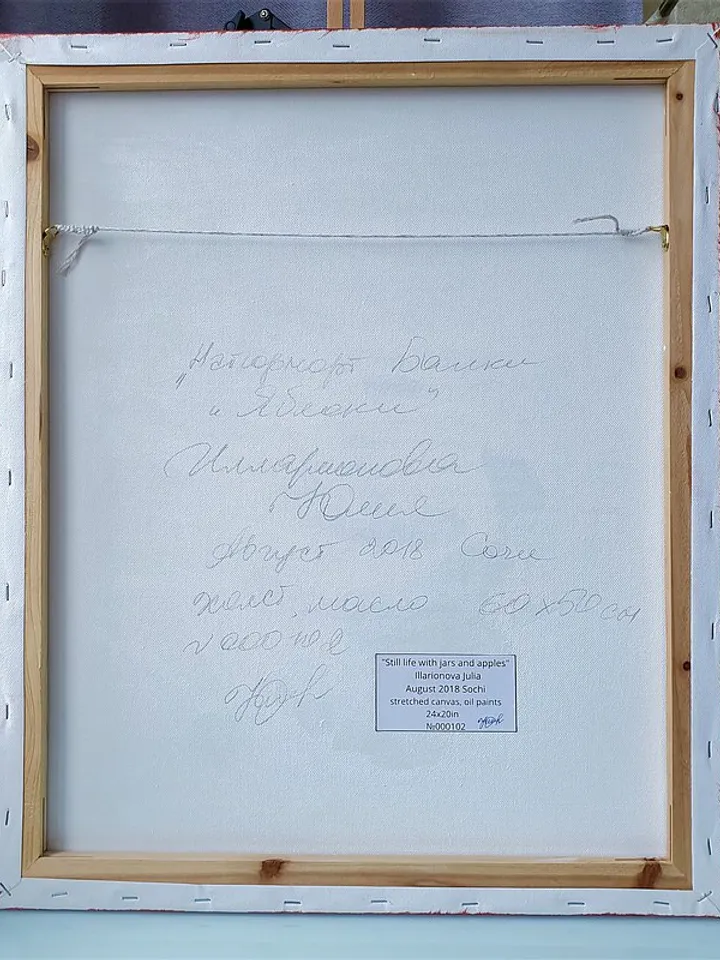 „Натюрморт Банки
и Яблоки"
Илларионова
Юлия
Август 2018 Сочи
холст, масло 60х50см
"Still life with jars and apples"
Illarionova Julia
August 2018 Sochi
stretched canvas, oil paints
24x20in
№000102